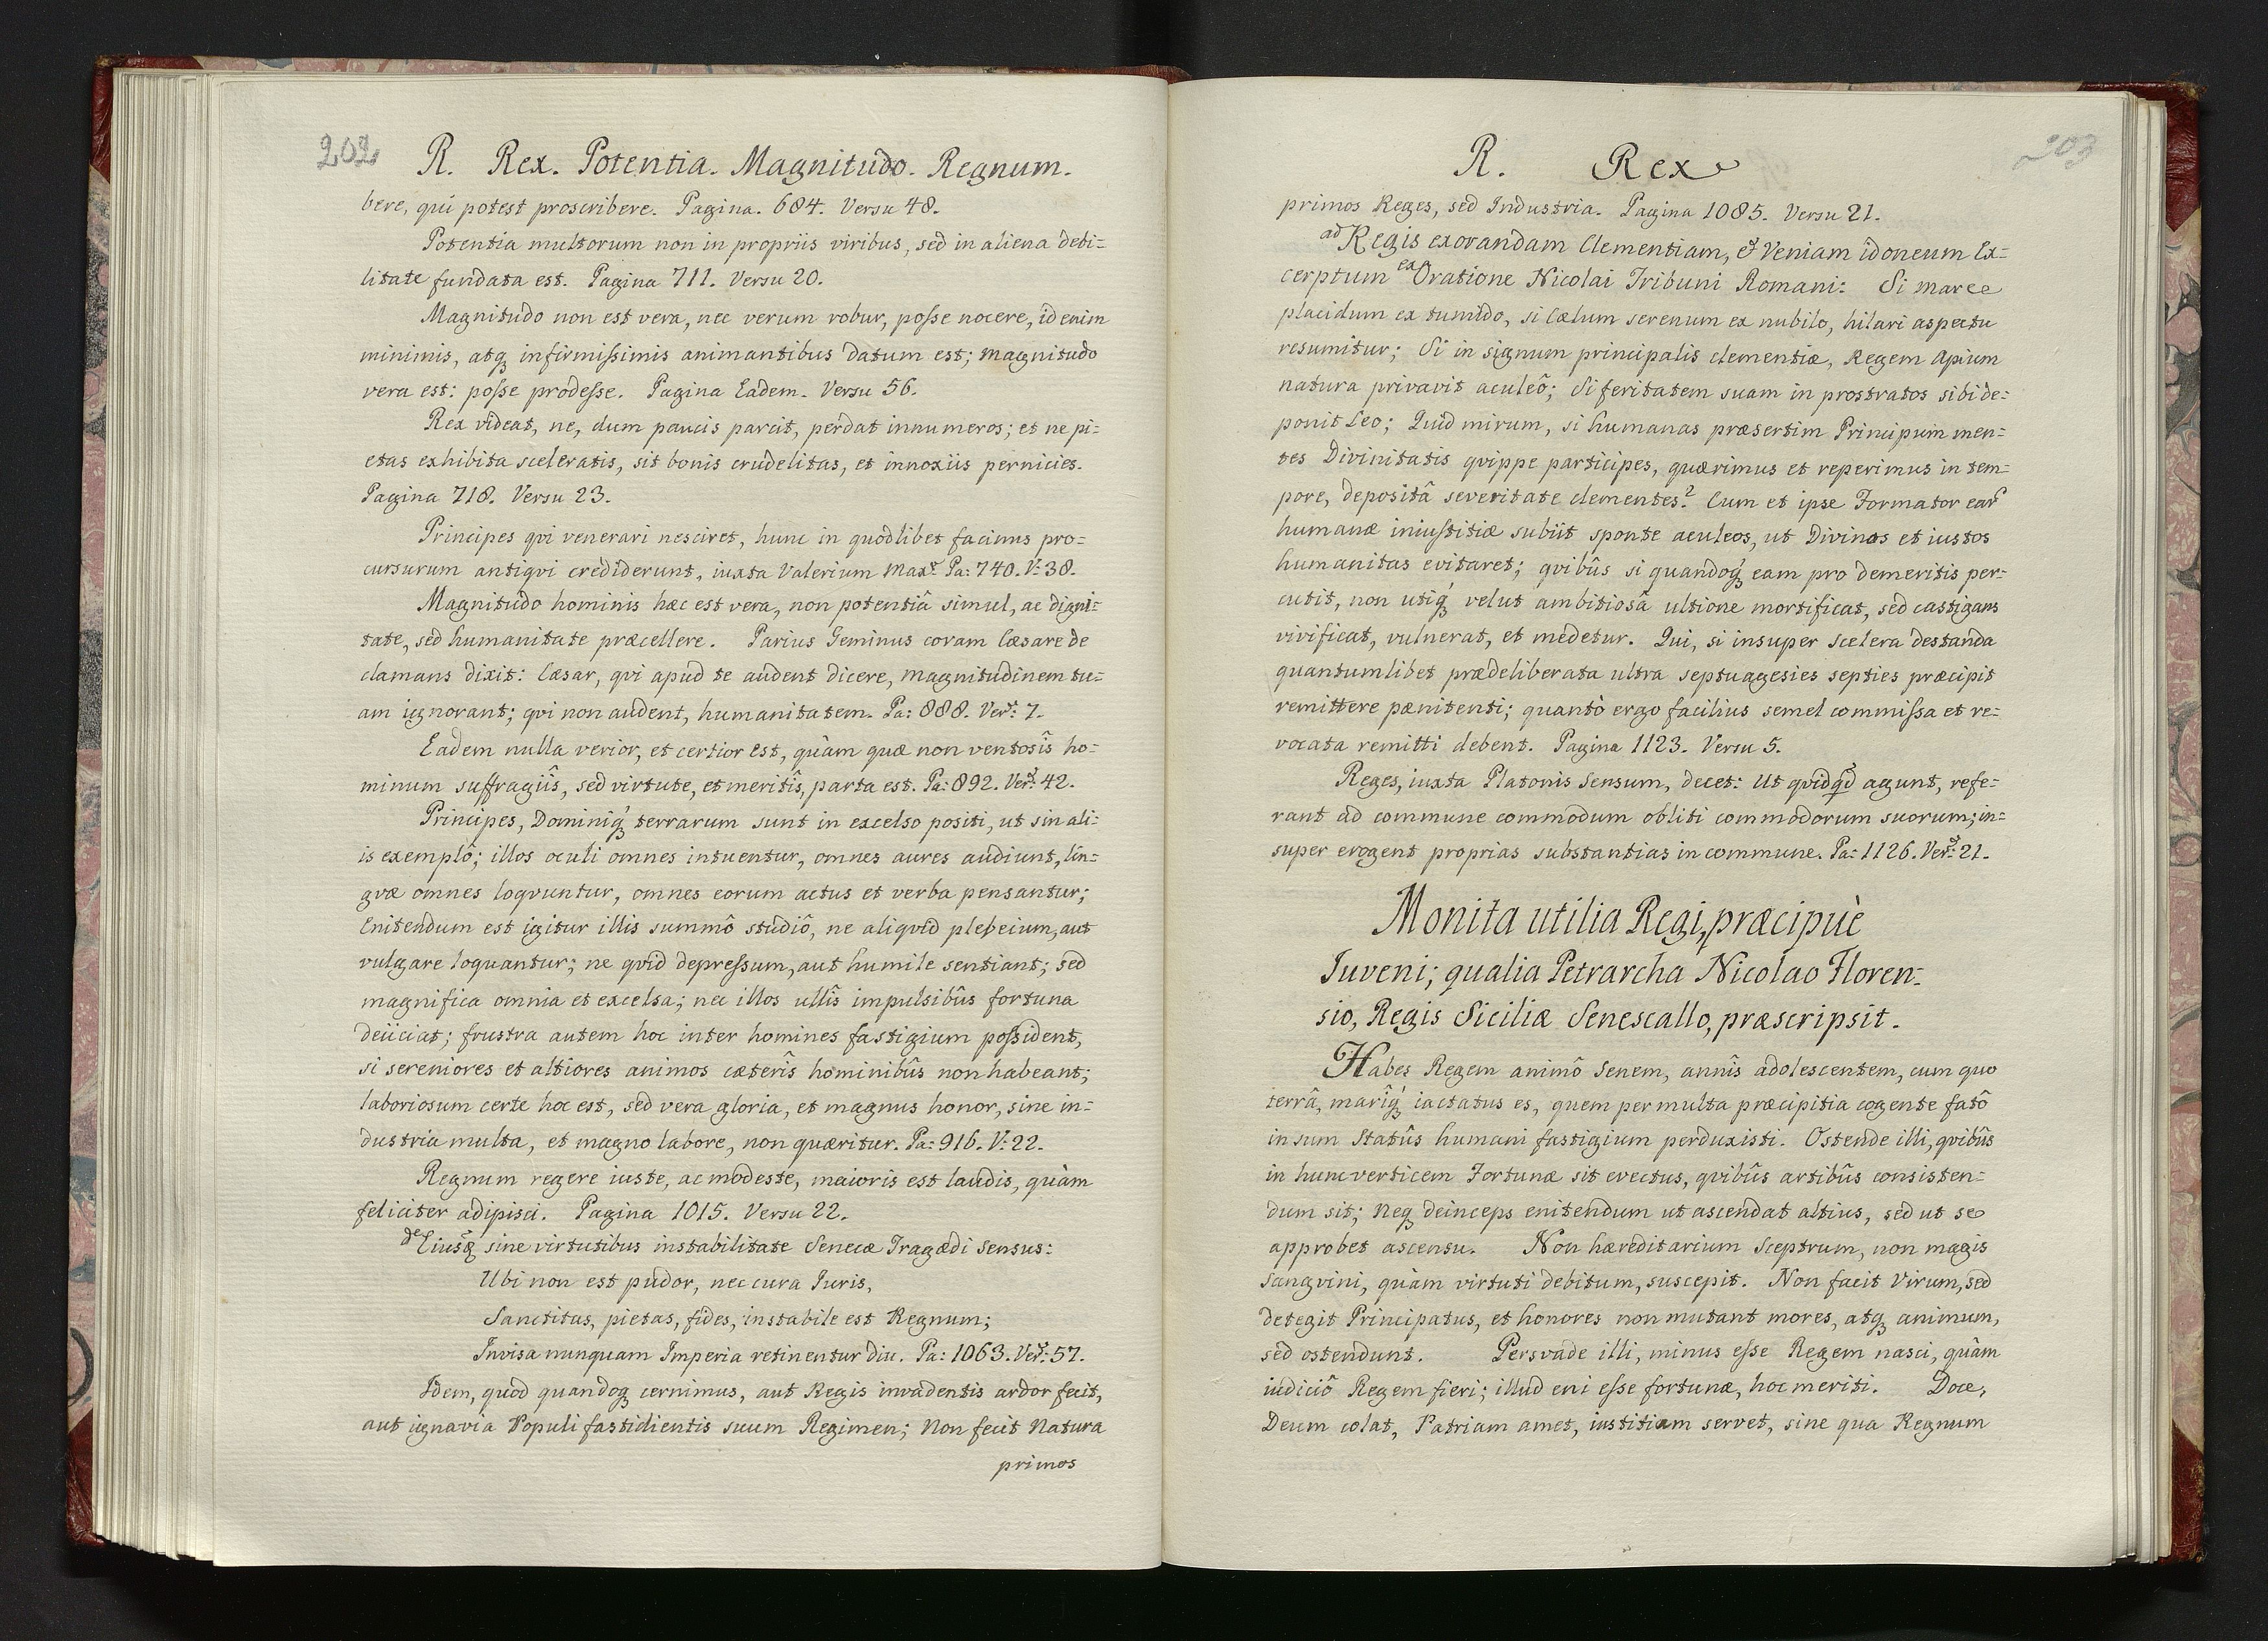 202
R. Rex. Potentia. Magnitudo. Regnum.
bere, qui potest proscribere. Pagina. 684. Versu 48.
Potentia multorum non in propriis viribus, sed in aliena debi=
litate fundata est. Pagina 711. Versu 20.
Magnitudo non est vera, nec verum robur, posse nocere, id enim
minimis, atq́ infirmissimis animantibus datum est; magnitudo
vera est: posse prodesse. Pagina Eadem. Versu 56.
Rex videat, ne, dum paucis parcit, perdat innumeros; et ne pi=
etas exhibita sceleratis, sit bonis crudelitas, et innoxiis pernicies.
Pagina 718. Versu 23.
Principes qvi venerari nesciret, hunc in quodlibet facinus pro=
cursurum antiqvi crediderunt, iuxta Valerium Max: Pa: 740. V: 38.
Magnitudo hominis hæc est vera, non potentiâ simul, ac digni=
tate, sed humanitate præcellere. Parius Geminus coram Cæsare de
clamans dixit: Cæsar, qvi apud te audent dicere, magnitudinem tu=
am ignorant; qvi non audent, humanitatem. Pa: 888. Vers: 7.
Eadem nulla verior, et certior est, quàm quæ non ventosîs ho=
minum suffragiîs, sed virtute, et meritîs, parta est. Pa: 892. Vers: 42.
Principes, Dominiq́ terrarum sunt in excelso positi, ut sin ali=
is exemplô; illos oculi omnes intuentur, omnes aures audiunt, lin=
gvæ omnes loqvuntur, omnes eorum actus et verba pensantur;
Enitendum est igitur illis summô studiô, ne aliqvid plebeium, aut
vulgare loquantur; ne qvid depressum, aut humile sentiant; sed
magnifica omnia et excelsa; nec illos ullîs impulsibûs fortuna
deiiciat; frustra autem hoc inter homines fastigium possident,
si sereniores et altiores animos cæterîs hominibûs non habeant;
laboriosum certe hoc est, sed vera gloria, et magnus honor, sine in=
dustria multa, et magno labore, non quæritur. Pa: 916. V: 22.
Regnum regere iuste, ac modeste, maioris est laudis, quàm
feliciter adipisci. Pagina 1015. Versu 22.
de Eiusq́ sine virtutibus instabilitate Senecæ Tragædi sensus:
Ubi non est pudor, nec cura Iuris,
Sanctitas, pietas, fides, instabile est Regnum;
Invisa nunquam Imperia retinentur diu. Pa: 1063. Vers: 57.
Idem, quod quandoq́ cernimus, aut Regis invadentis ardor fecit,
aut ignavia Populi fastidientis suum Regimen; Non fecit Natura
primos
203
R. Rex
primos Reges, sed Industria. Pagina 1085. Versu 21.
ad Regis exorandam Clementiam, & Veniam idoneum Ex=
cerptum ex Oratione Nicolai Tribuni Romani: Si mare
placidum ex tumido, si Cælum serenum ex nubilo, hilari aspectu
resumitur; Si in signum principalis clementiæ, Regem Apium
natura privavit aculeô; Si feritatem suam in prostratos sibi de=
ponit Leo; Quid mirum, si humanas præsertim Principum men=
tes Divinitatis qvippe participes, quærimus et reperimus in tem=
pore, depositâ severitate clementes? Cum et ipse Formator ear
humanæ iniustitiæ subiit sponte aculeos, ut Divinos et iustos
humanitas evitaret; qvibûs si quandoq́ eam pro demeritis per=
cutit, non utiq́ velut ambitiosâ ultione mortificat, sed castigans
vivificat, vulnerat, et medetur. Qui, si insuper scelera destanda
quantumlibet prædeliberata ultra septuagesies septies præcipit
remittere pænitenti; quantò ergo facilius semel commissa et re=
vocata remitti debent. Pagina 1123. Versu 5.
Reges, iuxta Platonis Sensum, decet: Ut qvidqd agunt, refe=
rant ad commune commodum obliti commodorum suorum; in=
super erogent proprias substantias in commune. Pa: 1126. Vers: 21.
Monita utilia Regi, præcipuè
Iuveni; qualia Petrarcha Nicolao Floren=
sio, Regis Siciliæ Senescallo, præscripsit.
Habes Regem animô Senem, annîs adolescentem, cum quo
terrâ, marîq́ iactatus es, quem per multa præcipitia cogente fatô
in sum Statûs humani fastigium perduxisti. Ostende illi, qvibûs
in hunc verticem Fortunæ sit evectus, qvibûs artibûs consisten=
dum sit; Neq́ deinceps enitendum ut ascendat altius, sed ut se
approbet ascensu. Non hæreditarium Sceptrum, non magis
Sangvini, quàm virtuti debitum, suscepit. Non facit Virum, sed
detegit Principatus, et honores non mutant mores, atq́ animum,
sed ostendunt. Persvade illi, minus esse Regem nasci, quàm
iudiciô Regem fieri; illud eni esse fortunæ, hoc meriti. Doce,
Deum colat, Patriam amet, iustitiam servet, sine qua Regnum